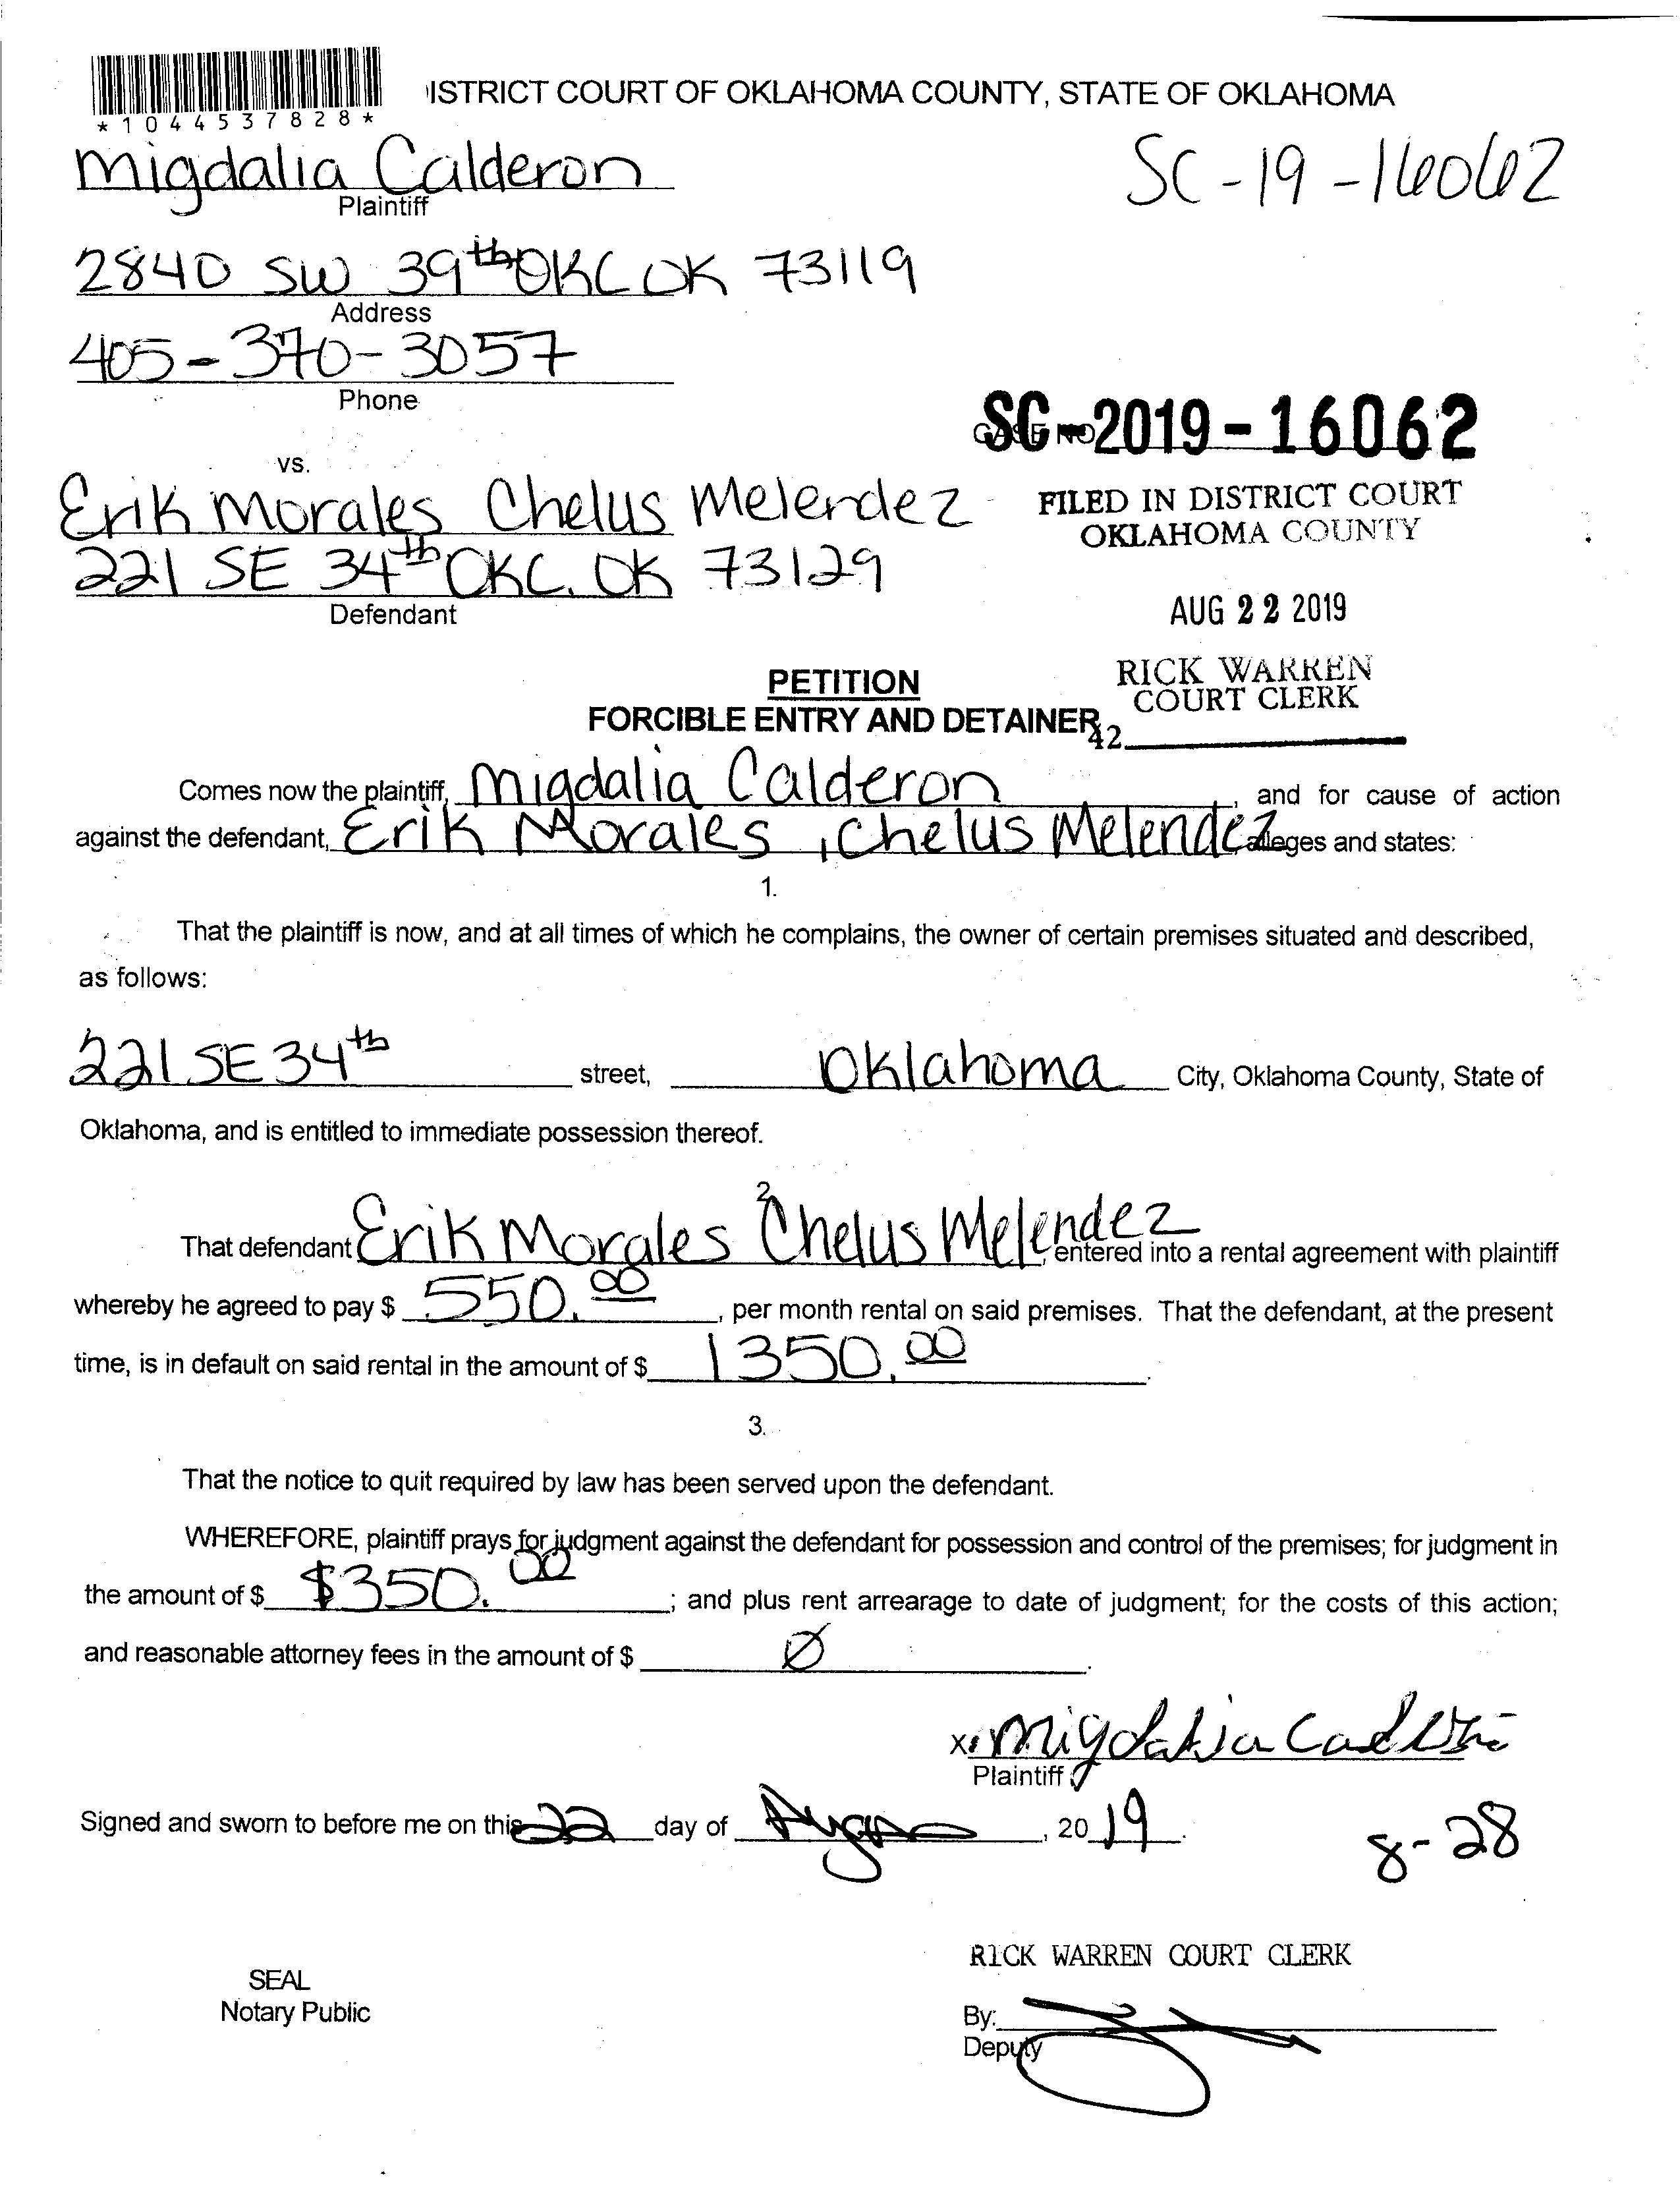 ISTRICT COURT OF OKLAHOMA COUNTY, STATE OF OKLAHOMA
*1044537828*
Migdalia Calderon
SC-19-16062
Plaintiff
2840 SW 39th OKC OK 73119
Address
405-370-3057
Phone
CASE NO
SC-2019-16062
vs.
Erik Morales Chelus Melendez
FILED IN DISTRICT COURT
OKLAHOMA COUNTY
221 SE 34th OKC. OK 73129
Defendant
AUG 22 2019
RICK WARREN
COURT CLERK
PETITION
FORCIBLE ENTRY AND DETAINER
42
Comes now the plaintiff, Migdalia Calderon, and for cause of action
against the defendant, Erik Morales, Chelus Melendez alleges and states:
1.
That the plaintiff is now, and at all times of which he complains, the owner of certain premises situated and described,
as follows:
221 SE 34th street, Oklahoma City, Oklahoma County, State of
Oklahoma, and is entitled to immediate possession thereof.
2.
That defendant Erik Morales Chelus Melendez, entered into a rental agreement with plaintiff
whereby he agreed to pay $ 550.00, per month rental on said premises. That the defendant, at the present
time, is in default on said rental in the amount of $ 1350.00.
3.
That the notice to quit required by law has been served upon the defendant.
WHEREFORE, plaintiff prays for judgment against the defendant for possession and control of the premises; for judgment in
the amount of $ $350.00; and plus rent arrearage to date of judgment; for the costs of this action;
and reasonable attorney fees in the amount of $ Ø.
x Migdalia Calderon
Plaintiff
Signed and sworn to before me on this 22 day of August, 2019.
8-28
RICK WARREN COURT CLERK
SEAL
Notary Public
By:
Deputy